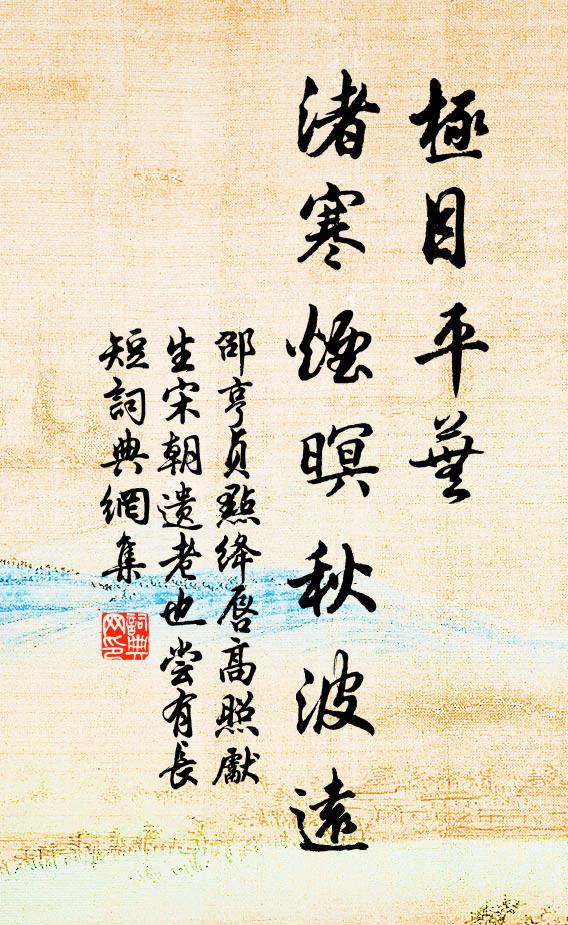 極目平蕪
渚寒煙暝秋波遠
邵亨貞點絳唇高照獻
生宋朝遺老也嘗有長
短詞典網集
詞典
网印